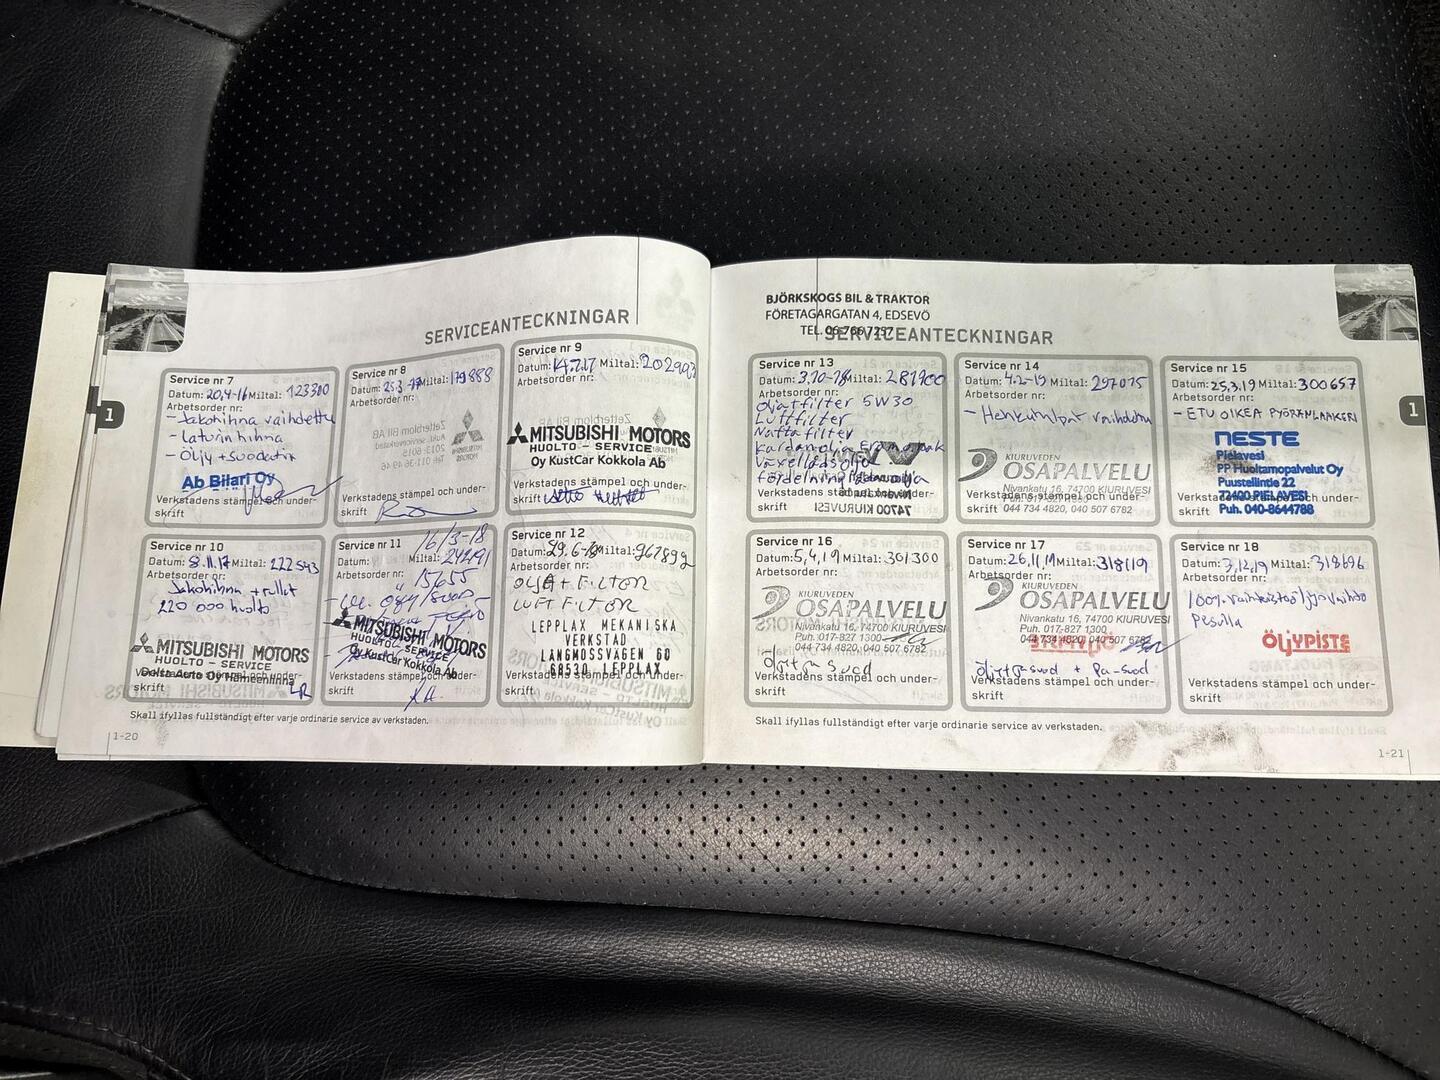 SERVICEANTECKNINGAR
Service nr 7
Datum: 20.4-16 Miltal: 123300
Arbetsorder nr:
- Jakohihna vaihdettu
- Laturin hihna
- Öljy + suodatin
Ab Bilari Oy
Verkstadens stämpel och under-
skrift
Service nr 8
Datum: 25.3 -17 Miltal: 179888
Arbetsorder nr:
Verkstadens stämpel och under-
skrift
Service nr 9
Datum: 14.7.17 Miltal: 202993
Arbetsorder nr:
MITSUBISHI MOTORS
HUOLTO - SERVICE
Oy KustCar Kokkola Ab
Verkstadens stämpel och under-
skrift
Service nr 10
Datum: 8.11.17 Miltal: 222543
Arbetsorder nr:
Jakohihna + rullat
220 000 huolto
MITSUBISHI MOTORS
HUOLTO - SERVICE
Delta Auto Oy Hämeenlinna
Verkstadens stämpel och under-
skrift
Service nr 11
16/3-18
Datum:
Miltal: 242491
Arbetsorder nr:
15655
MITSUBISHI MOTORS
HUOLTO - SERVICE
Oy KustCar Kokkola Ab
skrift
Service nr 12
Datum: 29.6-18 Miltal: 267892
Arbetsorder nr:
OLJA + FILTER
LUFTFILTER
LEPPLAX MEKANISKA
VERKSTAD
LÅNGMOSSVÄGEN 60
68530 LEPPLAX
Verkstadens stämpel och under-
skrift
Skall ifyllas fullständigt efter varje ordinarie service av verkstaden.
1-20
1
BJÖRKSKOGS BIL & TRAKTOR
FÖRETAGARGATAN 4, EDSEVÖ
TEL. 06-766 7257
SERVICEANTECKNINGAR
Service nr 13
Datum: 3.10-18 Miltal: 281900
Arbetsorder nr:
Olja+filter 5W30
Luftfilter
Naftafilter
Kardanolja
Växellådsolja
Verkstadens stämpel och under-
skrift
Service nr 14
Datum: 4.2-19 Miltal: 297075
Arbetsorder nr:
KIURUVEDEN
OSAPALVELU
Nivankatu 16, 74700 KIURUVESI
Verkstadens stämpel och under-
skrift
044 734 4820, 040 507 6782
Service nr 15
Datum: 25.3.19 Miltal: 300657
Arbetsorder nr:
- ETU OIKEA PYÖRÄNLAAKERI
NESTE
Pielavesi
PP Huoltamopalvelut Oy
Puustellintie 22
72400 PIELAVESI
Puh. 040-8644788
Verkstadens stämpel och under-
skrift
Service nr 16
Datum: 5.4.19 Miltal: 301300
Arbetsorder nr:
KIURUVEDEN
OSAPALVELU
Nivankatu 16, 74700 KIURUVESI
Puh. 017-827 1300
044 734 4820, 040 507 6782
Öljyt + suod
Verkstadens stämpel och under-
skrift
Service nr 17
Datum: 26.11.19 Miltal: 318119
Arbetsorder nr:
KIURUVEDEN
OSAPALVELU
Nivankatu 16, 74700 KIURUVESI
Puh. 017-827 1300
044 734 4820, 040 507 6782
Öljyt + suod + Pa-suod
Verkstadens stämpel och under-
skrift
Service nr 18
Datum: 3.12.19 Miltal: 318696
Arbetsorder nr:
100% vaihteistoöljynvaihto
Pesulla
ÖLJYPISTE
Verkstadens stämpel och under-
skrift
Skall ifyllas fullständigt efter varje ordinarie service av verkstaden.
1-21
1